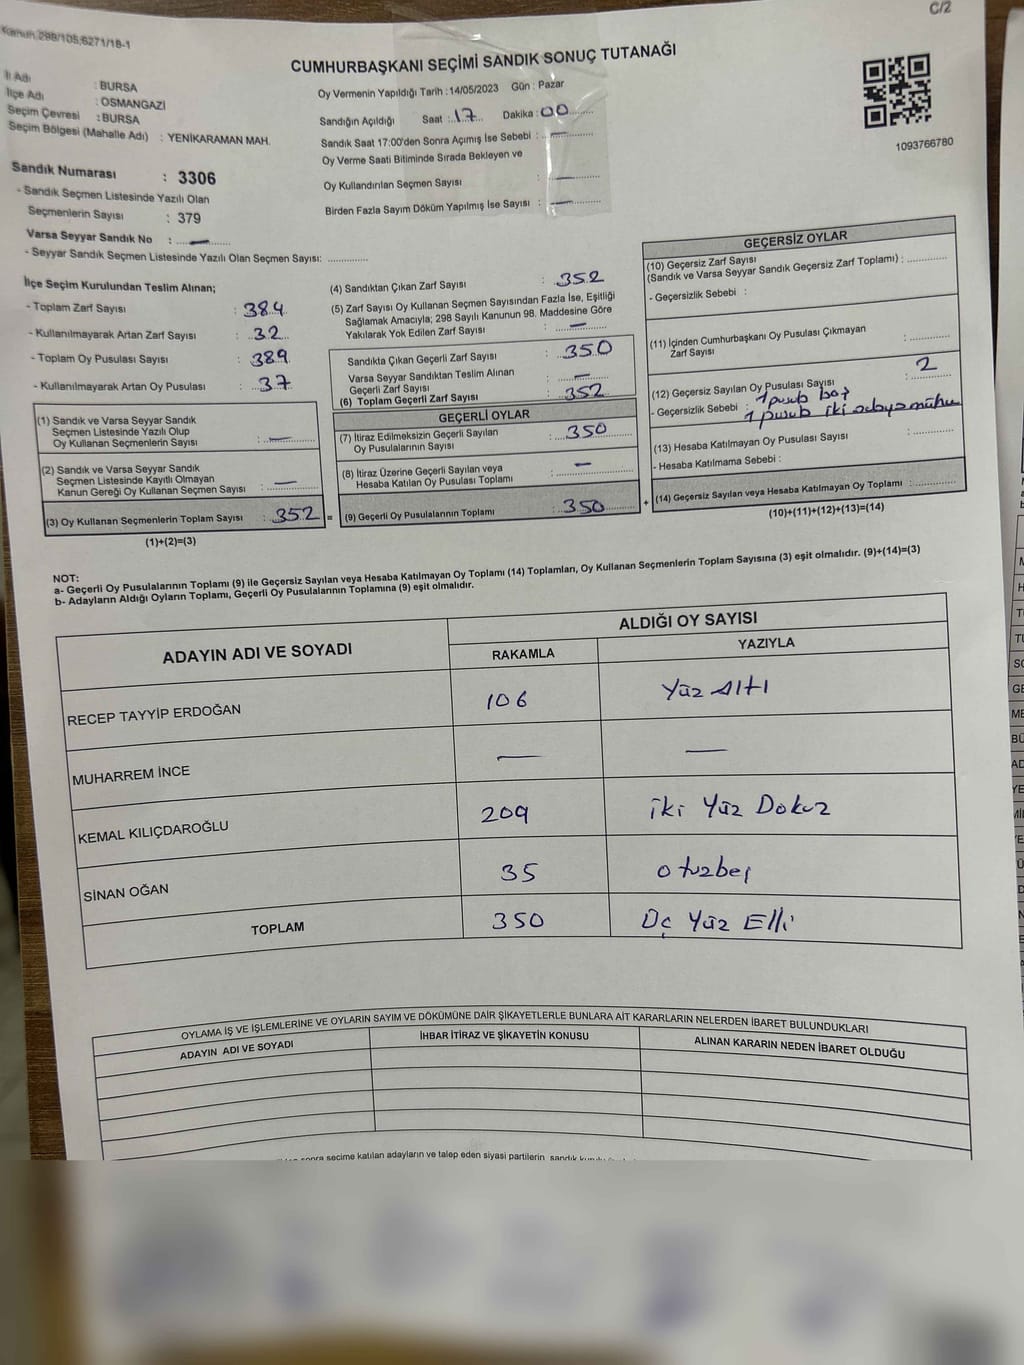 Kanun:298/105,6271/18-1
C/2
CUMHURBAŞKANI SEÇİMİ SANDIK SONUÇ TUTANAĞI
İl Adı : BURSA
İlçe Adı : OSMANGAZİ
Seçim Çevresi : BURSA
Seçim Bölgesi (Mahalle Adı) : YENİKARAMAN MAH.
Sandık Numarası : 3306
- Sandık Seçmen Listesinde Yazılı Olan
Seçmenlerin Sayısı : 379
Varsa Seyyar Sandık No : —
- Seyyar Sandık Seçmen Listesinde Yazılı Olan Seçmen Sayısı: ..............
Oy Vermenin Yapıldığı Tarih : 14/05/2023 Gün : Pazar
Sandığın Açıldığı Saat : 17 Dakika : 00
Sandık Saat 17:00'den Sonra Açımış İse Sebebi : —
Oy Verme Saati Bitiminde Sırada Bekleyen ve
Oy Kullandırılan Seçmen Sayısı : —
Birden Fazla Sayım Döküm Yapılmış İse Sayısı : —
1093766780
İlçe Seçim Kurulundan Teslim Alınan;
- Toplam Zarf Sayısı : 384
- Kullanılmayarak Artan Zarf Sayısı : 32
- Toplam Oy Pusulası Sayısı : 389
- Kullanılmayarak Artan Oy Pusulası : 37
(1) Sandık ve Varsa Seyyar Sandık
Seçmen Listesinde Yazılı Olup
Oy Kullanan Seçmenlerin Sayısı : —
(2) Sandık ve Varsa Seyyar Sandık
Seçmen Listesinde Kayıtlı Olmayan
Kanun Gereği Oy Kullanan Seçmen Sayısı : —
(3) Oy Kullanan Seçmenlerin Toplam Sayısı : 352 =
(1)+(2)=(3)
(4) Sandıktan Çıkan Zarf Sayısı : 352
(5) Zarf Sayısı Oy Kullanan Seçmen Sayısından Fazla İse, Eşitliği
Sağlamak Amacıyla; 298 Sayılı Kanunun 98. Maddesine Göre
Yakılarak Yok Edilen Zarf Sayısı : —
Sandıkta Çıkan Geçerli Zarf Sayısı : 350
Varsa Seyyar Sandıktan Teslim Alınan
Geçerli Zarf Sayısı : —
(6) Toplam Geçerli Zarf Sayısı : 352
GEÇERLİ OYLAR
(7) İtiraz Edilmeksizin Geçerli Sayılan
Oy Pusulalarının Sayısı : 350
(8) İtiraz Üzerine Geçerli Sayılan veya
Hesaba Katılan Oy Pusulası Toplamı : —
(9) Geçerli Oy Pusulalarının Toplamı : 350 +
GEÇERSİZ OYLAR
(10) Geçersiz Zarf Sayısı
(Sandık ve Varsa Seyyar Sandık Geçersiz Zarf Toplamı) : ............
- Geçersizlik Sebebi :
(11) İçinden Cumhurbaşkanı Oy Pusulası Çıkmayan
Zarf Sayısı : ............
(12) Geçersiz Sayılan Oy Pusulası Sayısı : 2
- Geçersizlik Sebebi : 1 pusula boş
1 pusula iki adaya mühür
(13) Hesaba Katılmayan Oy Pusulası Sayısı : ............
- Hesaba Katılmama Sebebi :
(14) Geçersiz Sayılan veya Hesaba Katılmayan Oy Toplamı : ............
(10)+(11)+(12)+(13)=(14)
NOT:
a- Geçerli Oy Pusulalarının Toplamı (9) ile Geçersiz Sayılan veya Hesaba Katılmayan Oy Toplamı (14) Toplamları, Oy Kullanan Seçmenlerin Toplam Sayısına (3) eşit olmalıdır. (9)+(14)=(3)
b- Adayların Aldığı Oyların Toplamı, Geçerli Oy Pusulalarının Toplamına (9) eşit olmalıdır.
ADAYIN ADI VE SOYADI
ALDIĞI OY SAYISI
RAKAMLA YAZIYLA
RECEP TAYYİP ERDOĞAN 106 Yüz Altı
MUHARREM İNCE — —
KEMAL KILIÇDAROĞLU 209 İki Yüz Dokuz
SİNAN OĞAN 35 otuzbeş
TOPLAM 350 Üç Yüz Elli
OYLAMA İŞ VE İŞLEMLERİNE VE OYLARIN SAYIM VE DÖKÜMÜNE DAİR ŞİKAYETLERLE BUNLARA AİT KARARLARIN NELERDEN İBARET BULUNDUKLARI
ADAYIN ADI VE SOYADI İHBAR İTİRAZ VE ŞİKAYETİN KONUSU ALINAN KARARIN NEDEN İBARET OLDUĞU
sonra seçime katılan adayların ve talep eden siyasi partilerin sandık